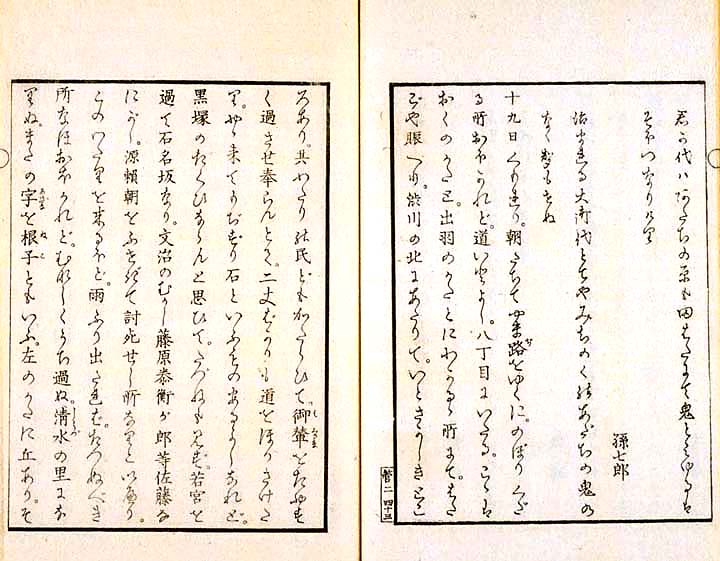 君が代ハあだちの原も田はたにて鬼と
そほつなりけり
孫七郎
治まれる大御代とてやみちのくのあだちの鬼の
なく声もせぬ
十九日くもれり。朝たちて山路をゆくに。のぼりくだ
る所おほかれど。道いとよし。八丁目にいたる。こゝは
おくのかたと。出羽のかたとにわかるゝ所にて。また
や賑へり。渋川の北にあたりて。いとさかしきとこ
菅二 四十三
ろあり。其わたりの民どもかたらひて。御輦をたやす
く過させ奉らんとて。二丈ばかりも道をほりさけた
り。やゝ来てもぢずり石といふものあるよしなれど。
黒塚のたぐひならんと思ひて。たづねも見ず。若宮を
過て石名坂なり。文治のむかし藤原泰衡が郎等佐藤な
にがし。源頼朝をふせぎて討死せし所なりといへり。
このわたりを来るほど。雨ふり出たれば。たづぬべき
所なほおほかれど。むなしくうち過ぬ。清水の里にな
りぬ。またの字を根子ともいふ。左のかたに丘あり。そ